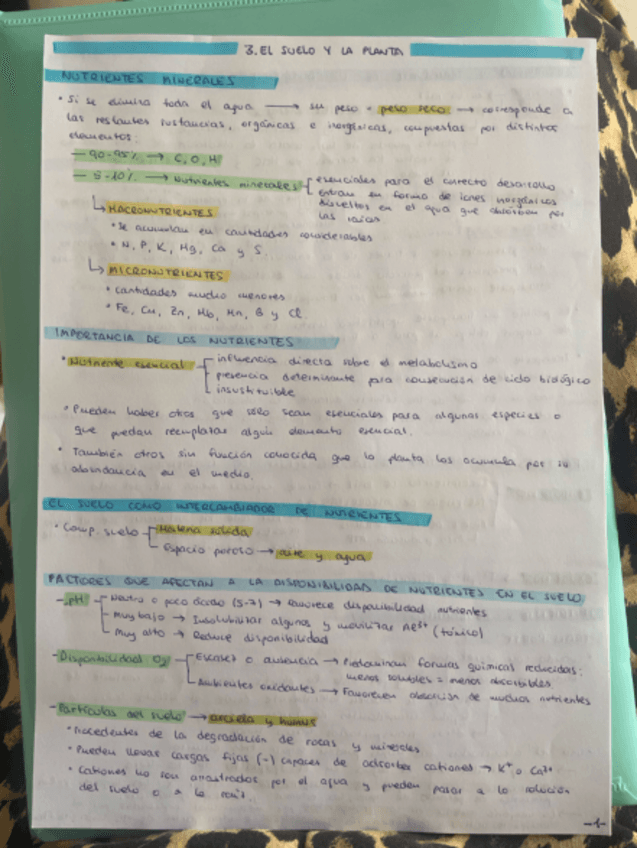 3. EL SUELO Y LA PLANTA
NUTRIENTES MINERALES
• Si se elimina toda el agua → su peso = peso seco → corresponde a
las restantes sustancias, orgánicas e inorgánicas, compuestas por distintos
elementos:
- 90-95% → C, O, H
- 5-10% → Nutrientes minerales
esenciales para el correcto desarrollo
entran en forma de iones inorgánicos
disueltos en el agua que absorben por
las raíces
↳ MACRONUTRIENTES
• Se acumulan en cantidades considerables
• N, P, K, Mg, Ca y S
↳ MICRONUTRIENTES
• Cantidades mucho menores
• Fe, Cu, Zn, Mb, Mn, B y Cl
IMPORTANCIA DE LOS NUTRIENTES
• Nutriente esencial
influencia directa sobre el metabolismo
presencia determinante para consecución de ciclo biológico
insustituible
• Pueden haber otros que sólo sean esenciales para algunas especies o
que puedan reemplazar algún elemento esencial.
• También otros sin función conocida que la planta los acumula por su
abundancia en el medio.
EL SUELO COMO INTERCAMBIADOR DE NUTRIENTES
• Comp. suelo
Materia sólida
Espacio poroso → aire y agua
FACTORES QUE AFECTAN A LA DISPONIBILIDAD DE NUTRIENTES EN EL SUELO
- pH
Neutro o poco ácido (5-7) → Favorece disponibilidad nutrientes
Muy bajo → Insolubilizar algunos y movilizar Al³⁺ (tóxico)
Muy alto → Reduce disponibilidad
- Disponibilidad O₂
Escasez o ausencia → Predominan formas químicas reducidas:
menos solubles = menos absorbibles
Ambientes oxidantes → Favorecen absorción de muchos nutrientes
- Partículas del suelo → arcilla y humus
• Procedentes de la degradación de rocas y minerales
• Pueden llevar cargas fijas (-) capaces de adsorber cationes → K⁺ o Ca²⁺
• Cationes no son arrastrados por el agua y pueden pasar a la solución
del suelo o a la raíz.
-1-